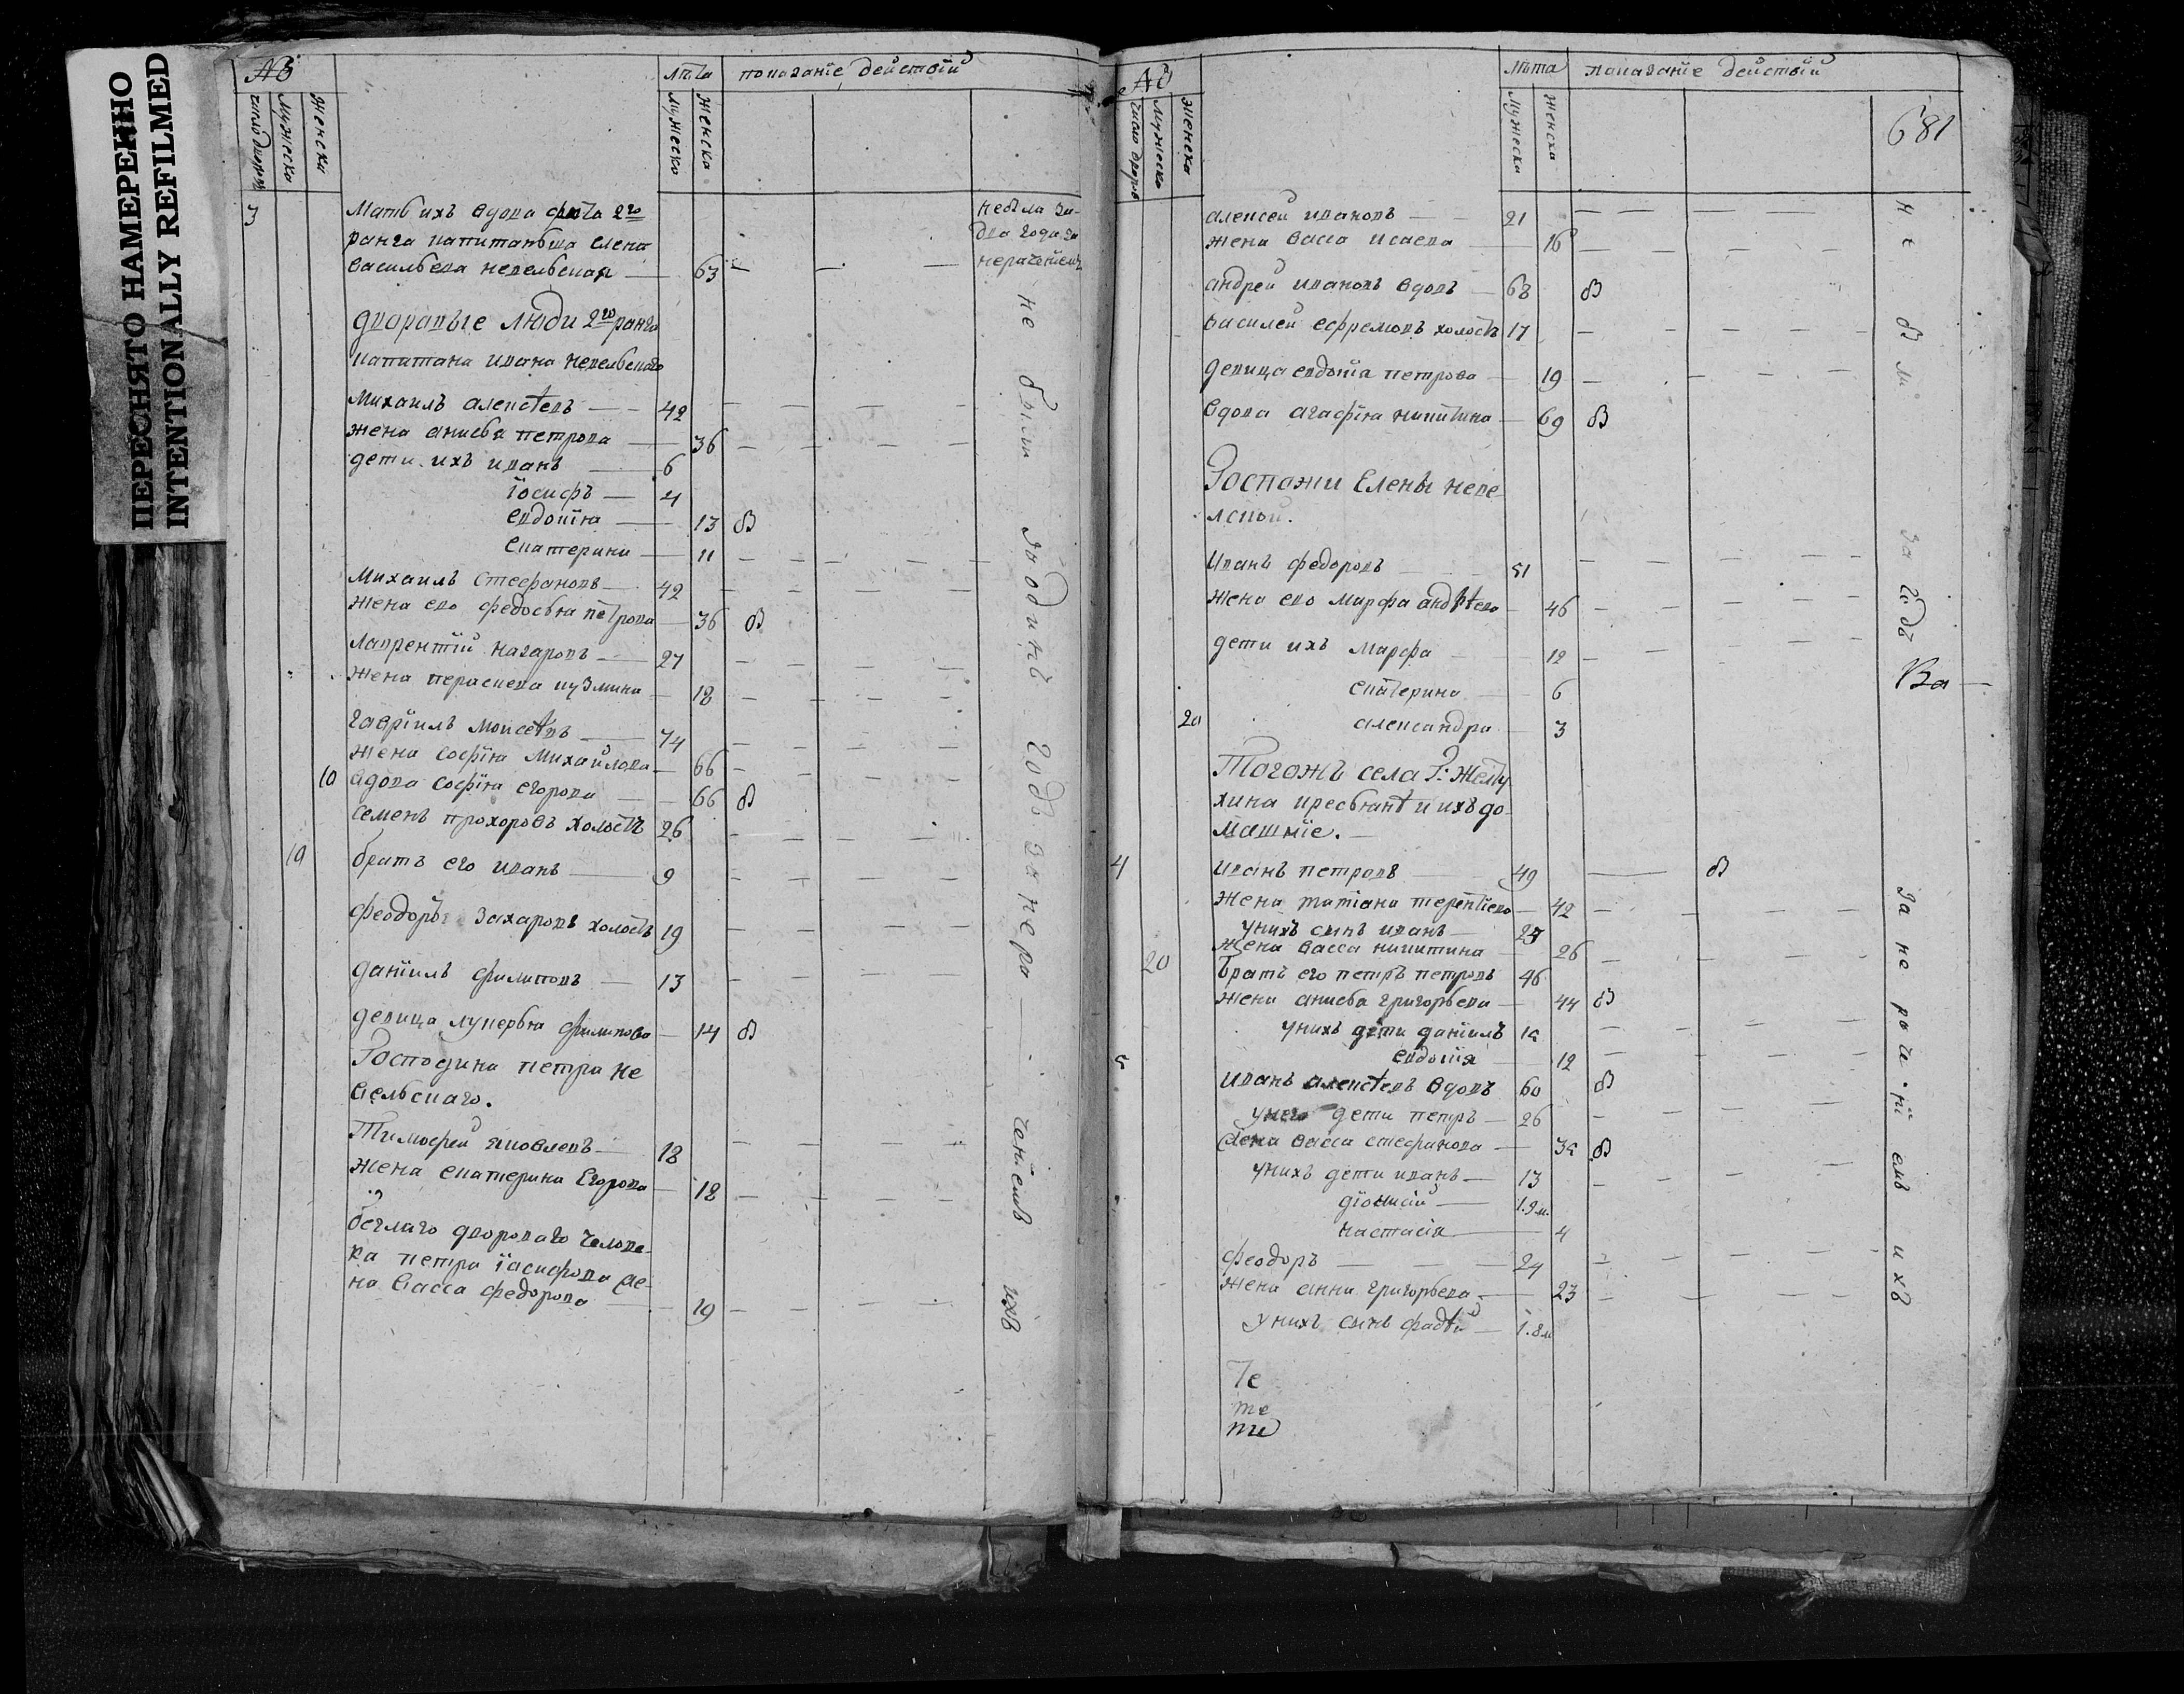 ПЕРЕСНЯТО НАМЕРЕННО
INTENTIONALLY REFILMED
лѣта показанїе действїй
число дворов
мужеска
женска
мужеска
женска
3 Мать ихъ вдова флота 2го
ранга капитаньша елена
васильева невельская — 63
небыла за
два года за
нерачениемъ
дворовые люди 2го ранга
капитана ивана невельскаго
Михаилъ алексѣевъ — 42
жена анисья петрова — 36
дети ихъ иванъ — 6
їосифъ — 4
евдокїя — 13 В
екатерина — 11
Михаилъ Стефановъ — 42
жена ево федосья петрова — 36 В
лаврентїй назаровъ — 27
жена параскева кузмина — 18
гаврїилъ моисѣевъ — 74
жена софїя Михайлова — 66
10 вдова софїя егорова — 66 В
семенъ прохоровъ холостъ 26
10 братъ его иванъ — 9
феодоръ захаровъ холостъ 19
данїилъ филиповъ — 13
девица лукерья филипова — 14 В
Господина петра не
вельскаго.
Тимофей яковлевъ — 18
жена екатерина Егорова — 18
беглаго двороваго челове
ка петра їасифова же
на васса федорова — 19
не были заодинъ годъ занерачениемъ ихъ
лѣта показанїе действїй
681
число дворов
мужеска
женска
мужеска
женска
алексей ивановъ — 21
жена васса исаева — 16
андрей ивановъ вдовъ — 68 В
василей ефремовъ холостъ 17
девица евдокїя петрова — 19
вдова агафїя никитина — 69 В
Госпожи Елены неве
лской.
Иванъ федоровъ — 51
жена ево марфа андрѣева — 46
дети ихъ марфа — 12
екатерина — 6
20 александра — 3
Тогожъ села Г: Желту
хина кресьянѣ и ихъ до
машнїе.
4 иванъ петровъ — 49 В
жена татїана терентїева — 42
унихъ сынъ иванъ — 27
жена васса никитина — 26
20 братъ его петръ петровъ 46
жена анисья григорьева — 44 В
унихъ дети данїилъ
5 евдокїя — 12
иванъ алексѣевъ вдовъ 60 В
унего дети петръ — 26
жена васса стефанова — В
унихъ дети иванъ — 13
дїонисїй — 1.9 м.
настасїя — 4
феодоръ — 24
жена анна григорьева — 23
унихъ сынъ фадѣй — 1.8 м
Те
те
не были за годъ занерачїемъ ихъ